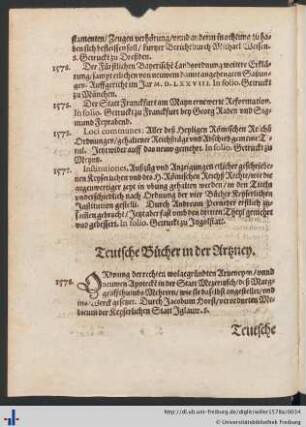 stamenten/ Zeugen verhörung/ vnnd andern in achtung zu haben
sich befleissen soll/ kurtzer Bericht durch Michael
8. Getruckt zu Dreßden.
1578. Der Fürstlichen Bayerische Landtordnung weitere Erklärung/
sampt etlichen von neuwem daran angehengten Satzungen.
Auffgericht im Jar M. D. LXXVIII. In folio. Getruckt
zu München.
1578. Der Statt Franckfurt am Mayn erneuerte Reformation.
In folio. Getruckt zu Franckfurt bey Georg Raben vnd Sigmund
Feyrabend.
1577. Loci communes: Aller deß Heyligen Römischen Reichs
Ordnungen/ gehaltener Reichßtäge vnd Abschied gemeine Titul.
Jetzt wider auff das neuw gemehrt. In folio. Getruckt zu
Meyntz.
1577. Institutiones, Außzug vnd Anzeigungen etlicher geschriebenen
Keyserlichen vnnd des H. Römischen Reichs Rechte/ wie die
gegenwertiger zeyt in vbung gehalten werden/ in den Tituln
vnderschiedlich nach Ordnung der vier Bücher Keyserlichen
Institution gestellt. Durch Andream Perneder erstlich zusammen
gebracht/ Jetzt aber fast vmb den dritten Theyl gemehrt
vnd gebessert. In folio. Getruckt zu Ingolstatt.
Teutsche Bücher in der Artzney.
1578. Ordnung der rechten wolgegründten Artzneyen/ vnnd
neuwen Apoteck in der Statt Meseritsch/ deß Marggraffthumbs
Mehrern/ wie sie daselbst angestellet/ vnd
ins Werck gesetzet. Durch Jacobum Horst/ verordneten Medicum
der Keyserlichen Statt Iglaw. 8.
Teutsche
http://dl.ub.uni-freiburg.de/diglit/willer1578a/0034
© Universitätsbibliothek Freiburg